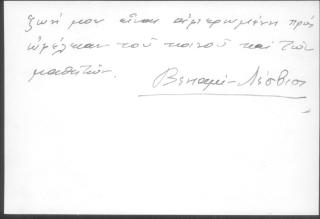 ζωή μου εἶναι ἀφιερωμένη πρός
ὠφέλειαν τοῦ κοινοῦ καί τῶν
μαθητῶν.
Βενιαμίν Λέσβιος